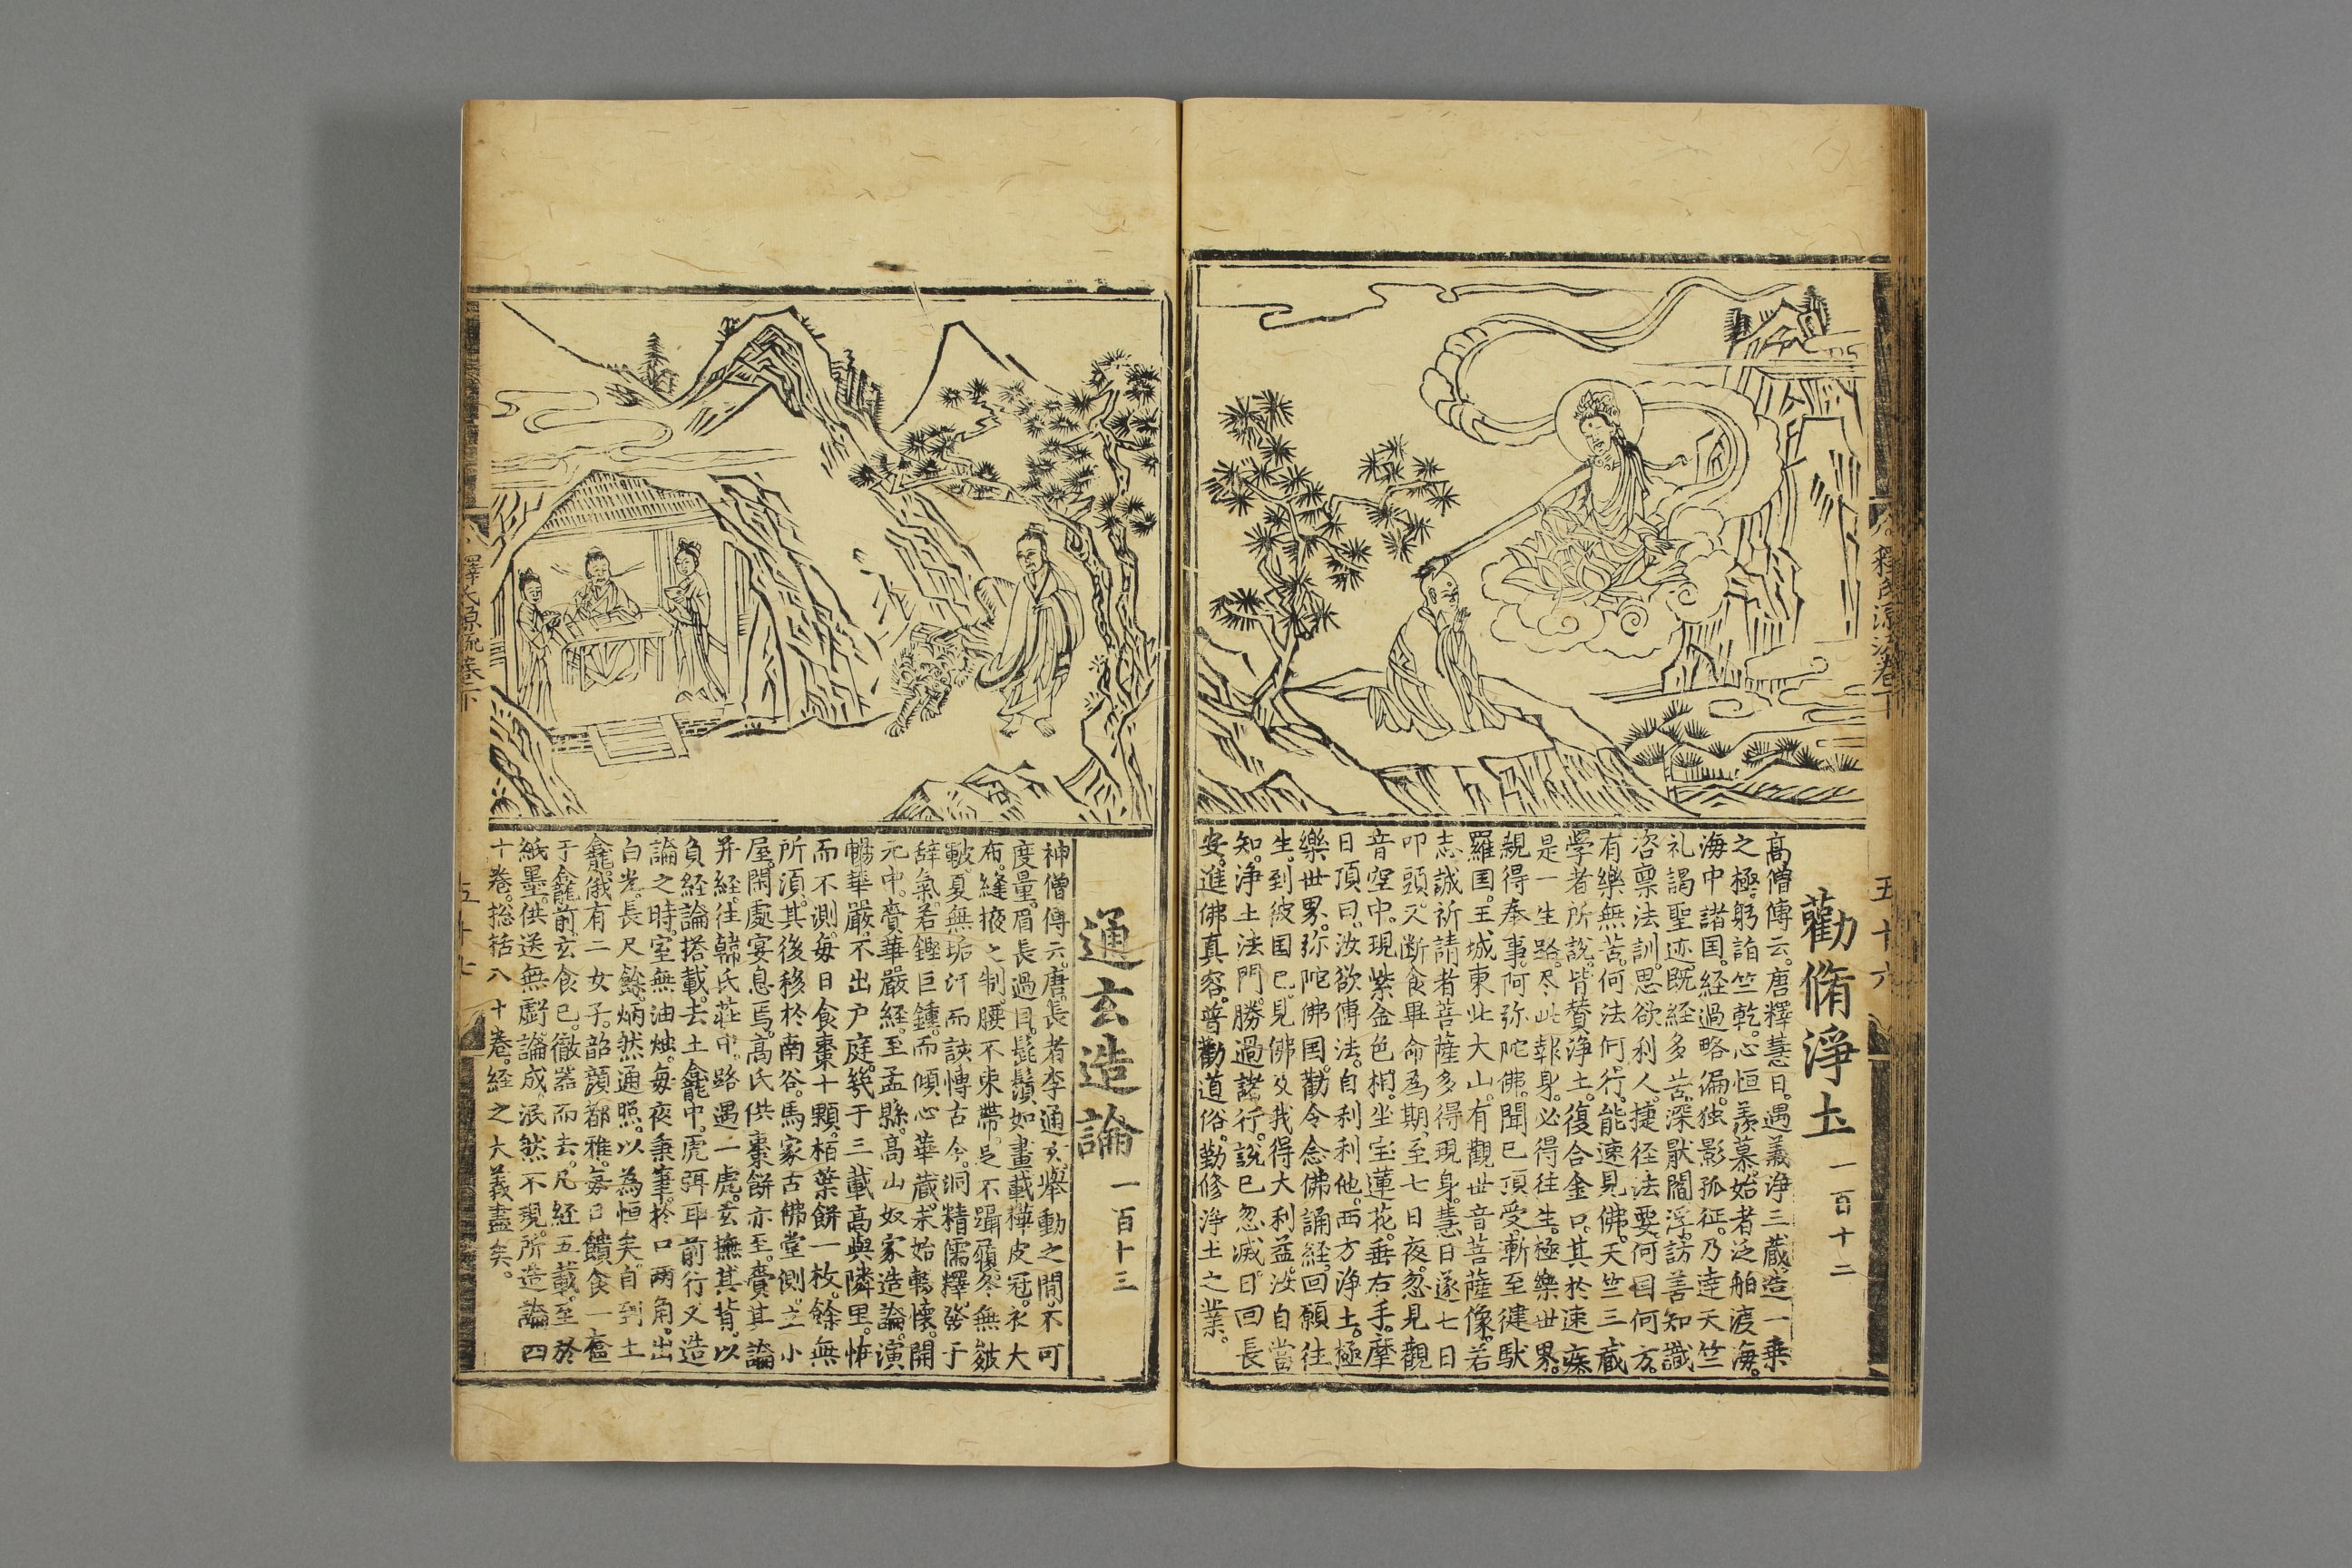 釋氏源流卷下
五十六
勸脩淨土 一百十二
高僧傳云。唐釋慧日。遇義淨三藏。造一乗
之極。躬詣竺乾。心恒羨慕。始者泛舶渡海。
海中諸国。経過略徧。独影孤征。乃達天竺
礼謁聖迹。既経多苦。深猒閻浮。訪善知識
咨禀法訓。思欲利人。捷径法要。何国何方。
有樂無苦。何法何行。能速見佛。天竺三藏
學者所說。皆賛淨土。復合金口。其於速疾
是一生路。尽此報身。必得往生。極樂世界。
親得奉事。阿弥陀佛。聞已頂受。漸至健馱
羅国。王城東北大山。有觀世音菩薩像。若
志誠祈請者。菩薩多得現身。慧日遂七日
叩頭。又断食畢命為期。至七日夜。忽見觀
音空中。現紫金色相。坐宝蓮花。垂右手。摩
日頂曰。汝欲傳法。自利利他。西方淨土。極
樂世界。弥陀佛国。勸令念佛誦経。回願往
生。到彼国已。見佛及我。得大利益。汝自當
知。淨土法門。勝過諸行。說已忽滅。日回長
安。進佛真容。普勸道俗。勤修淨土之業。
通玄造論 一百十三
神僧傳云。唐長者李通玄。擧動之間。不可
度量。眉長過目。髭鬚如畫。載樺皮冠。衣大
布。縫掖之制。腰不束帶。足不躡履。冬無皴
皸。夏無垢汗。而該慱古今。洞精儒釋。發于
辞氣。若鏗巨鍾。而傾心華藏。未始輟懷。開
元中。賷華嚴経。至孟縣。高山奴家造論。演
暢華嚴。不出户庭。幾于三載。高與隣里。恠
而不測。每日食棗十顆。栢葉餅一枚。餘無
所湏。其後移於南谷。馬家古佛堂側。立小
屋。閑處宴息焉。高氏供棗餅亦至。賷其論
并経。往韓氏莊中。路遇一虎。玄撫其背。以
負経論。搭載去土龕中。虎弭耳前行。又造
論之時。室無油燭。每夜秉筆。於口兩角。出
白光。長尺餘。炳然通照。以為恒矣。自到土
龕。俄有二女子。韶顔都雅。每日饋食一奩
于龕前。玄食已。徹器而去。凡経五載。至於
紙墨。供送無虧。論成泯然不現。所造論四
十卷。捴括八十卷。経之大義盡矣。
釋氏源流卷下
五十七